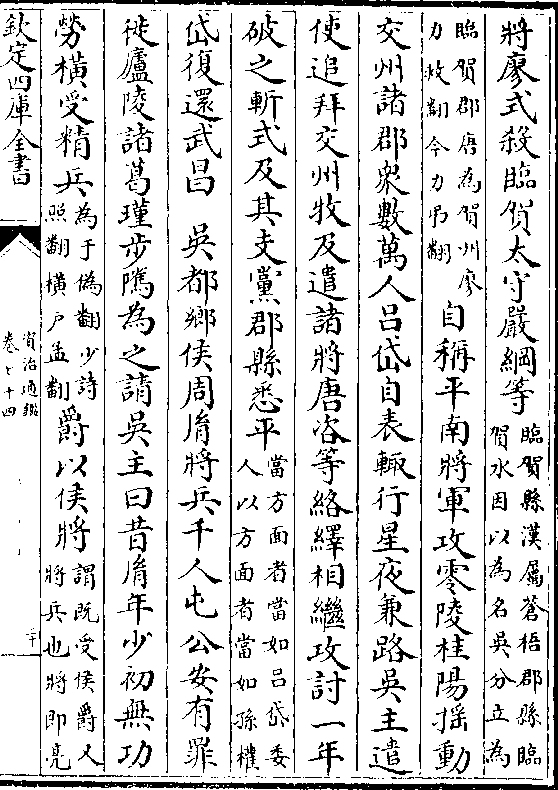 將廖式殺臨賀太守嚴綱等臨賀縣漢屬蒼梧郡縣臨
賀水因以為名吳分立為
臨賀郡唐為賀州廖
力救翻今力弔翻自稱平南將軍攻零陵桂陽揺動
交州諸郡衆數萬人呂岱自表輒行星夜兼路吳主遣
使追拜交州牧及遣諸將唐咨等絡繹相繼攻討一年
破之斬式及其支黨郡縣悉平當方面者當如呂岱委
人以方面者當如孫權
岱復還武昌　吳都鄉侯周胤將兵千人屯公安有罪
徙廬陵諸葛瑾步隲為之請吳主曰昔胤年少初無功
勞橫受精兵為于偽翻少詩
照翻橫户孟翻爵以侯將謂既受侯爵又
將兵也將即亮
欽定四庫全書
資治通鑑
卷七十四